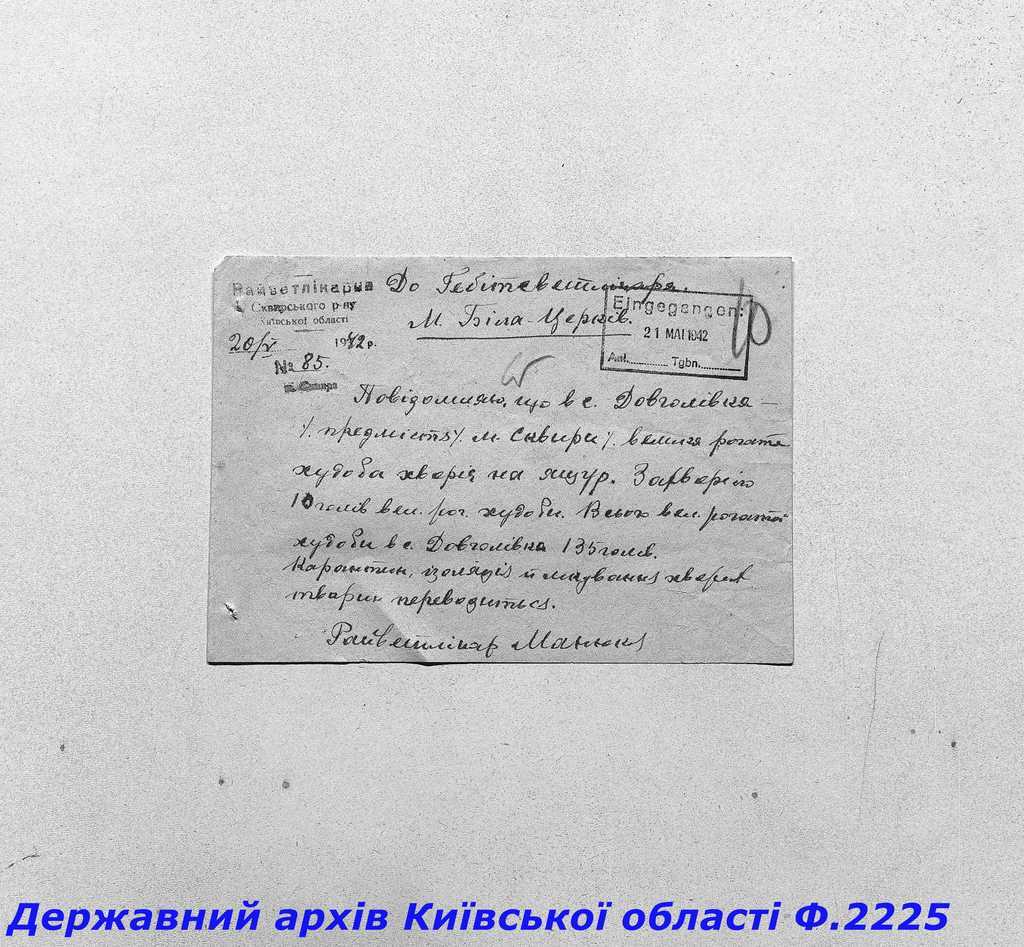 Райветлікарня
Сквирського р-ну
Київської області
20/V 1942 р.
№ 85.
м. Сквира
До Гебітсветлікаря.
М. Біла-Церків.
Eingegangen:
21 MAI 1942
Anl. Tgbn.
10
Повідомляю, що в с. Довголівка –
/. предмістя/. м. Сквири/. велика рогата
худоба хворіє на ящур. Захворіло
10 голів вел. рог. худоби. Всього вел. рогатої
худоби в с. Довголівка 135 голів.
Карантин, ізоляція й лікування хворих
тварин переводиться.
Райветлікар
Державний архів Київської області Ф.2225